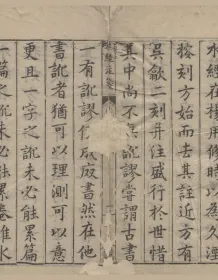 水經在
刻方始而去其近方有
吳歙二刻并盛行於世惜
其中尚不無訛謬嘗謂古書
水經注箋
一有訛謬便成廢書然在他
書訛者猶可以理測可以意
更且一字之訛未必能累篇
一篇之訛未必能累卷惟水